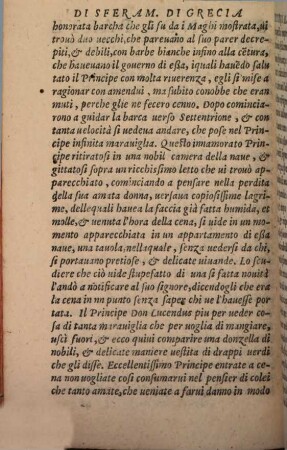 DI SFERAM. DI GRECIA
honorata barcha che gli fu da i Maghi mostrata, ui
trouò duo uecchi, che pareuano al suo parer decre-
piti, & debili, con barbe bianche infino alla cẽtura,
che haueuano il gouerno di essa, iquali hauẽdo salu
tato il Principe con molta riuerenza, egli si mise a
ragionar con amendui, ma subito conobbe che eran
muti, perche glie ne fecero cenno. Dopo comincia-
rono a guidar la barca uerso Settentrione, & con
tanta uelocità si uedeua andare, che pose nel Prin-
cipe infinita marauiglia. Questo innamorato Prin-
cipe ritiratosi in una nobil camera della naue, &
gittatosi sopra un ricchissimo letto che ui trouò ap-
parecchiato, cominciando a pensare nella perdita
della sua amata donna, uersaua copiosissime lagri-
me, dellequali hauea la faccia già fatta humida, et
molle, & uenuta l'hora della cena, si uide in un mo-
mento apparecchiata in un appartamento di essa
naue, una tauola, nellaquale, senza uedersi da chi,
si portauano pretiose, & delicate uiuande. Lo scu-
diere che ciò uide stupefatto di una si fatta nouità
l'andò a notificare al suo signore, dicendogli che era
la cena in un punto senza saper chi ue l'hauesse por
tata. Il Principe Don Lucendus piu per ueder co-
sa di tanta marauiglia che per uoglia di mangiare,
uscì fuori, & ecco quiui comparire una donzella di
nobili, & delicate maniere uestita di drappi uerdi
che gli disse. Eccellentissimo Principe entrate a ce-
na non uogliate cosi consumarui nel pensier di colei
che tanto amate, che ueniate a farui danno in modo